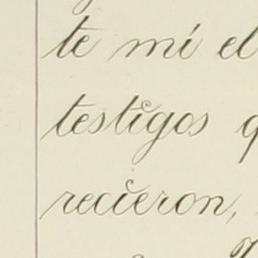 te mí el
testigos
recieron,